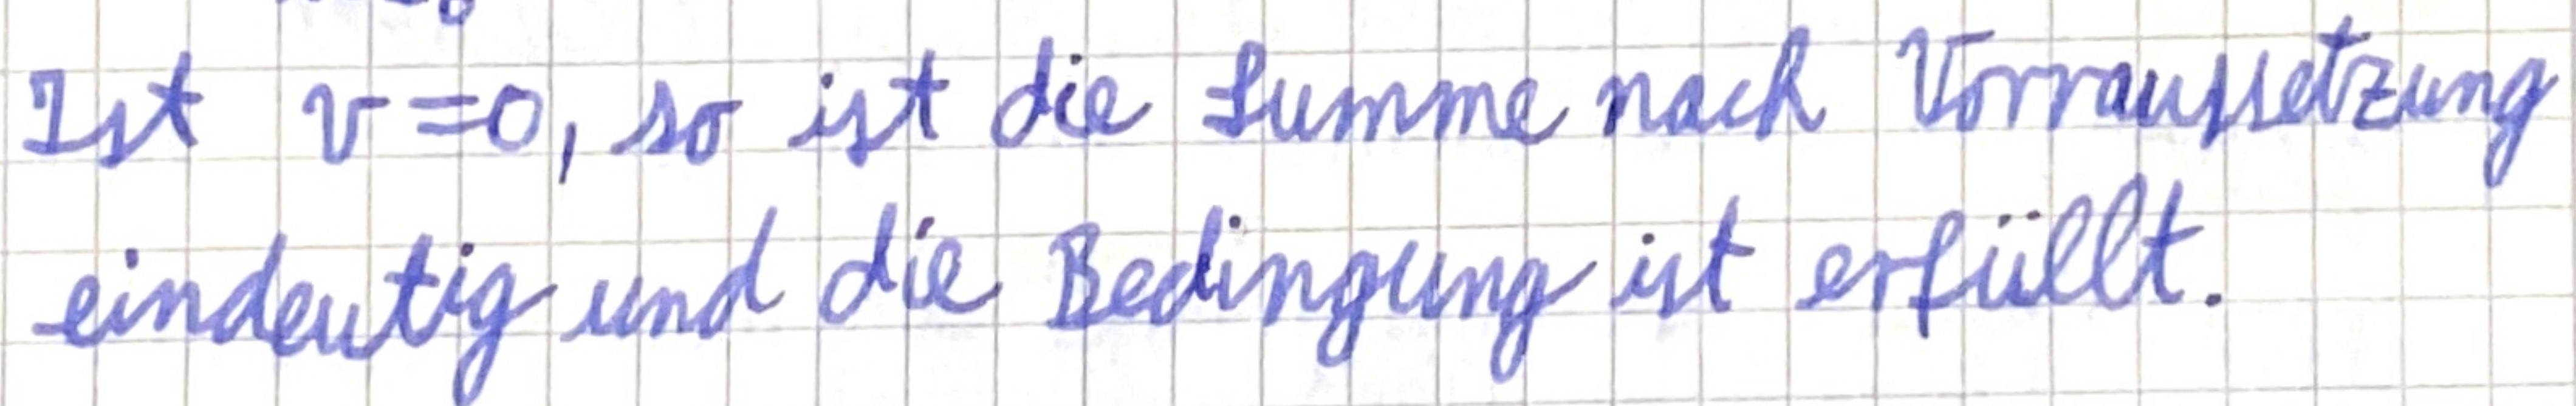 Ist v=0, so ist die Summe nach Vorraussetzung
eindeutig und die Bedingung ist erfüllt.